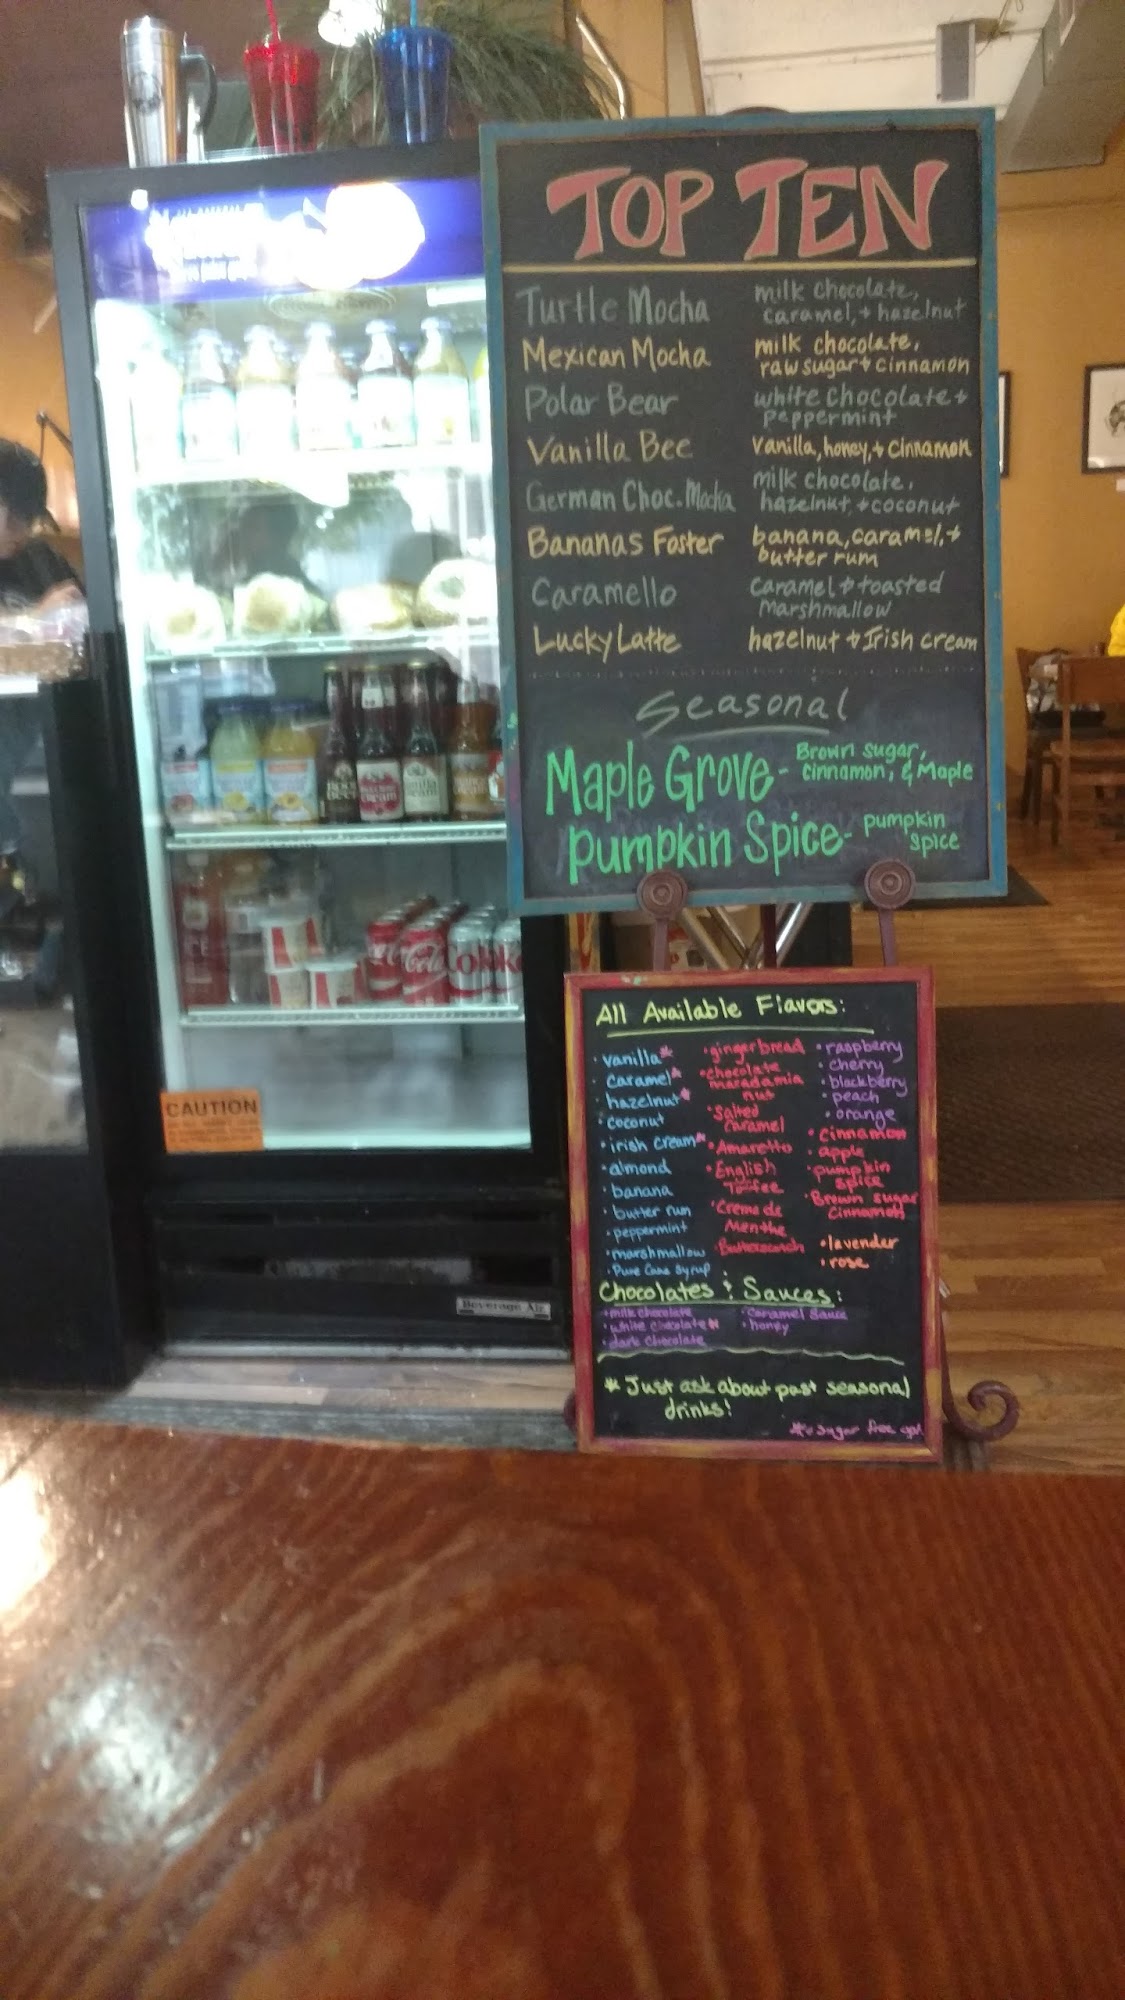 TOP TEN
Turtle Mocha
milk chocolate,
caramel, + hazelnut
Mexican Mocha
milk chocolate,
raw sugar + cinnamon
Polar Bear
white chocolate +
peppermint
Vanilla Bee
vanilla, honey, + cinnamon
German Choc. Mocha
milk chocolate,
hazelnut, + coconut
Bananas Foster
banana, caramel, +
butter rum
Caramello
caramel + toasted
marshmallow
Lucky Latte
hazelnut + Irish cream
Seasonal
Maple Grove -
Brown sugar,
cinnamon, & Maple
Pumpkin Spice -
pumpkin
spice
All Available Flavors:
• vanilla*
• caramel*
• hazelnut*
• coconut
• irish cream*
• almond
• banana
• butter rum
• peppermint
• marshmallow
• Pure Cane Syrup
• gingerbread
• chocolate
macadamia
nut
• Salted
caramel
• Amaretto
• English
Toffee
• Creme de
Menthe
• Butterscotch
• raspberry
• cherry
• blackberry
• peach
• orange
• cinnamon
• apple
• pumpkin
spice
• Brown sugar
Cinnamon
• lavender
• rose
Chocolates & Sauces:
• milk chocolate
• white chocolate*
• dark chocolate
• caramel sauce
• honey
* Just ask about past seasonal
drinks!
*= sugar free opt.
CAUTION
Beverage Air
Coca-Cola